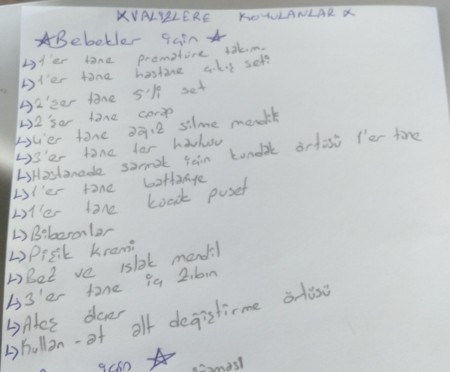 X VALİZLERE KOYULANLAR X
☆Bebekler için☆
↳1'er tane prematüre takım
↳1'er tane hastane çıkış seti
↳2'şer tane 5'li set
↳2'şer tane çorap
↳4'er tane ağız silme mendili
↳3'er tane ter havlusu
↳Hastanede sarmak için kundak örtüsü 1'er tane
↳1'er tane battaniye
↳1'er tane küçük puset
↳Biberonlar
↳Pişik kremi
↳Bez ve ıslak mendil
↳3'er tane iç zıbın
↳Ateş ölçer
↳Kullan-at alt değiştirme örtüsü
için ☆